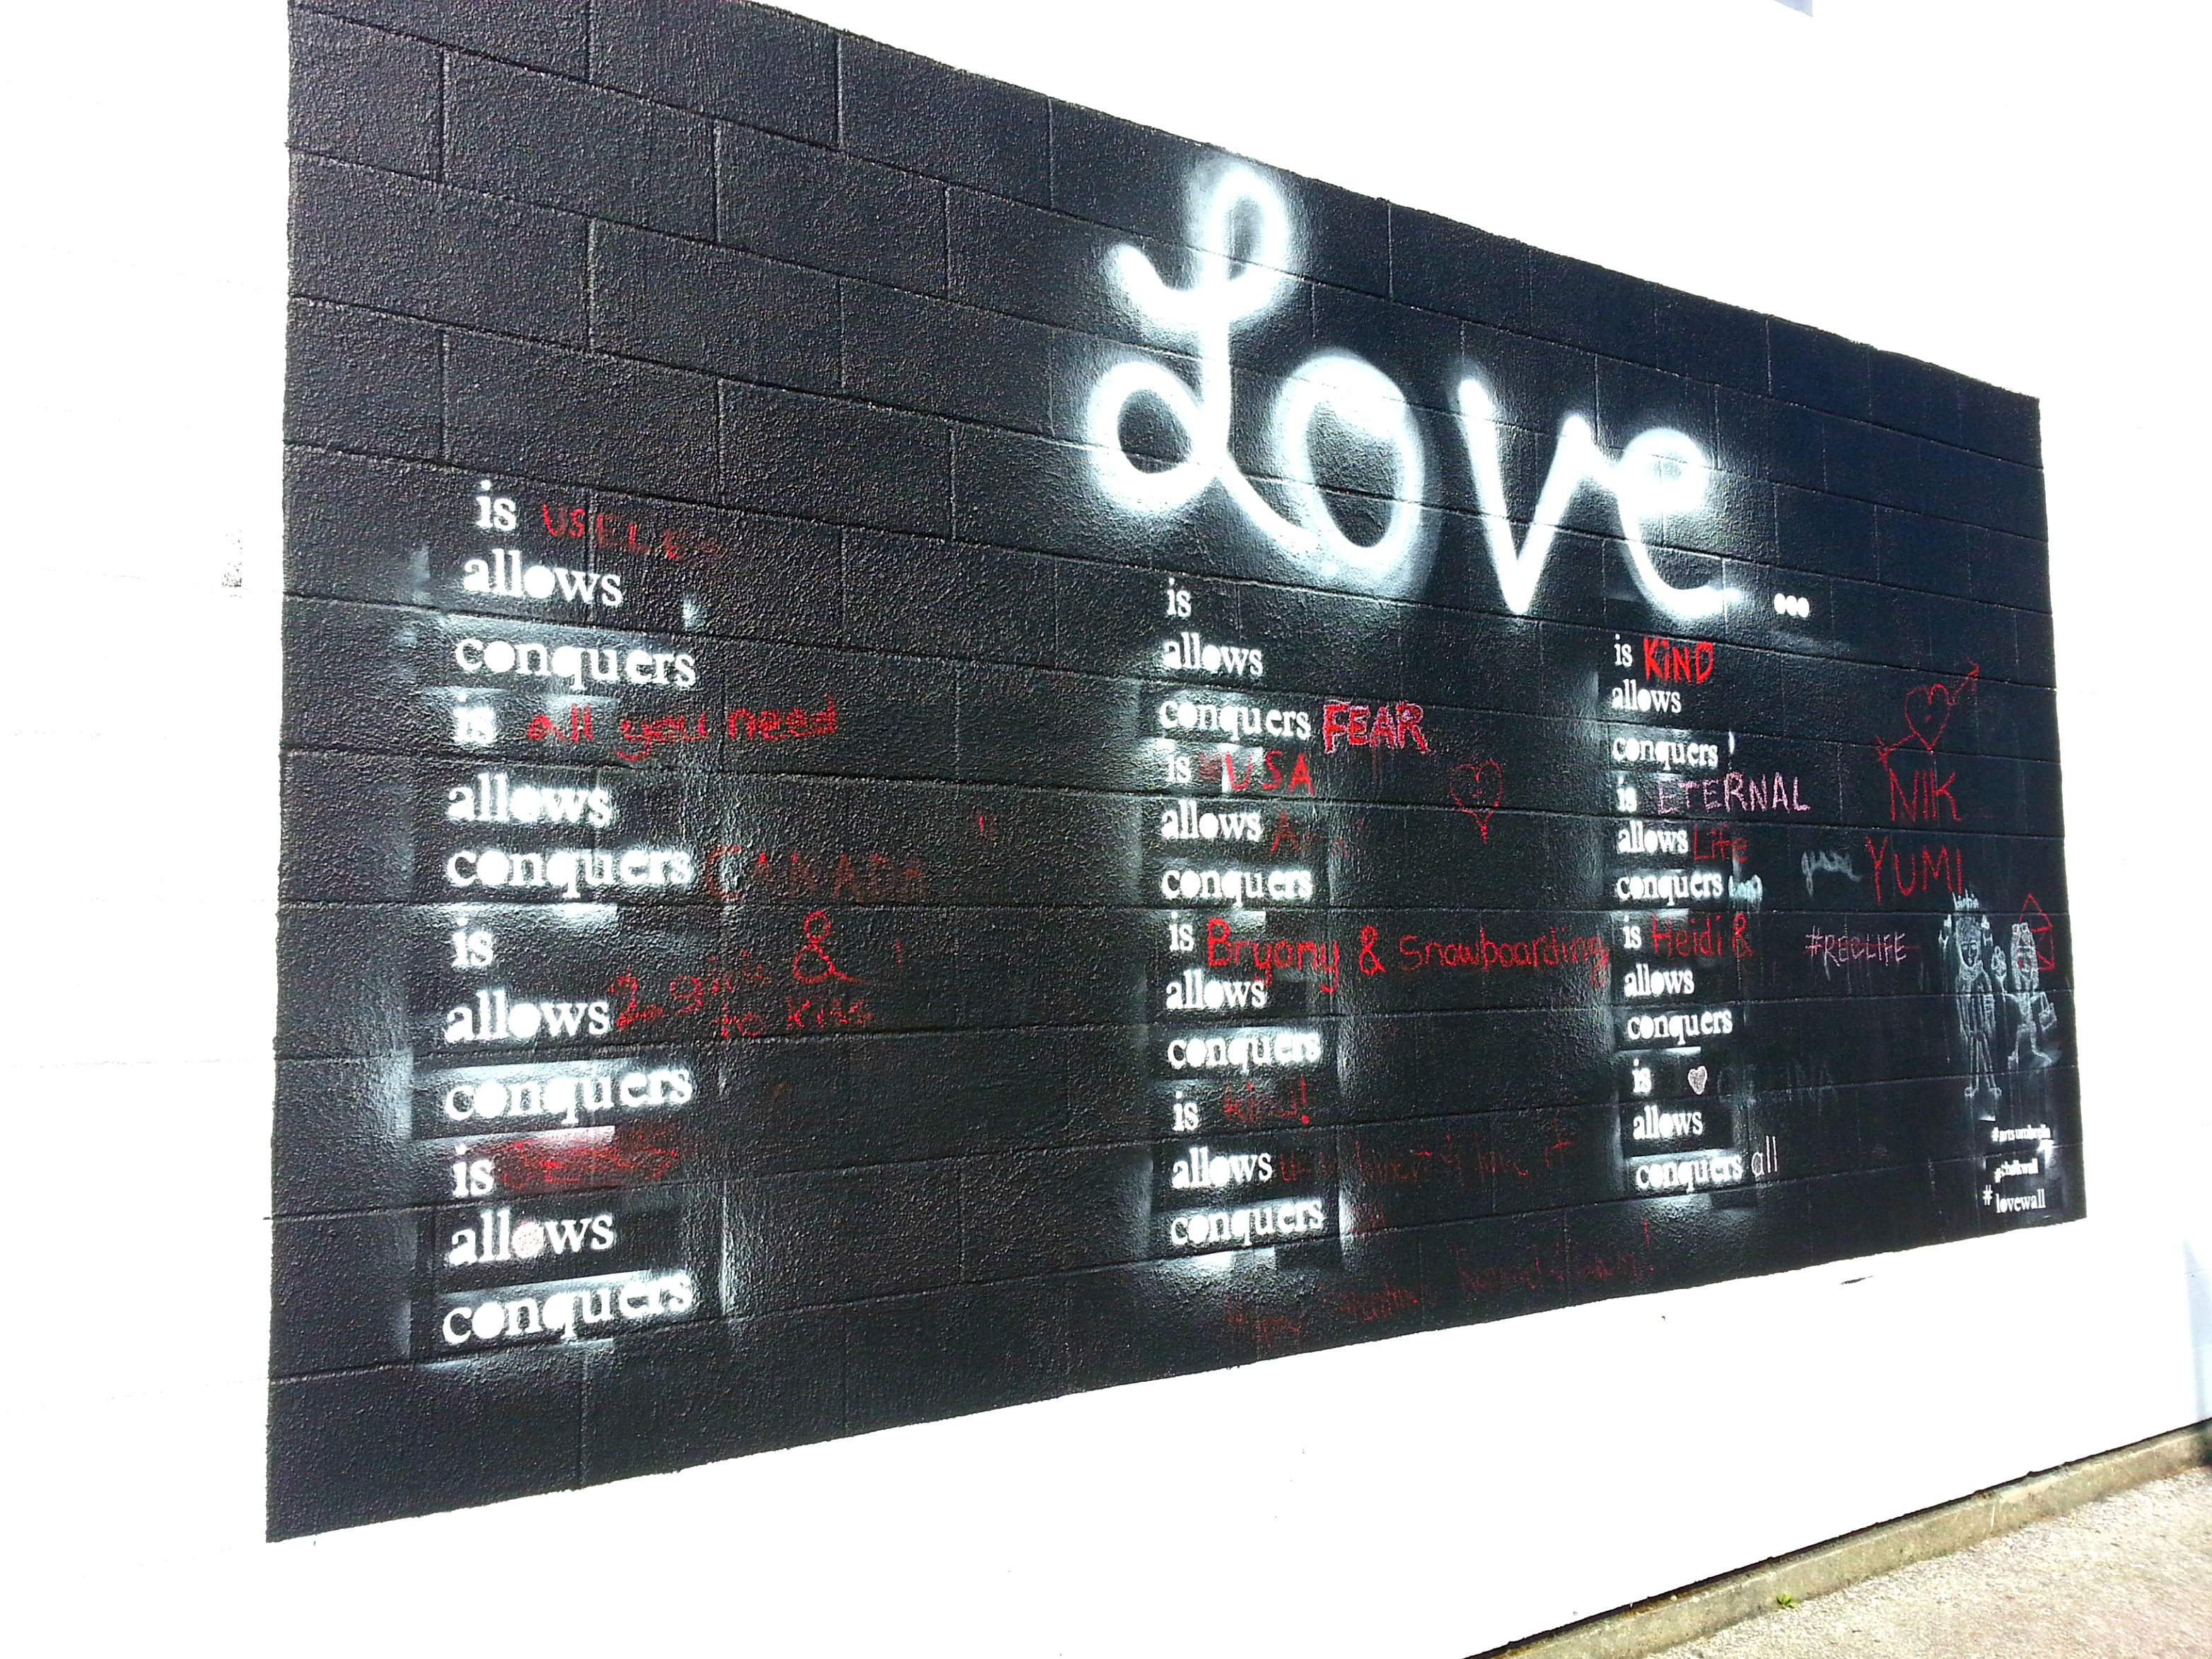 Love...
is USELES
allows
conquers
is all you need
allows
conquers CANADA
is
allows 2 girls &
to kiss
conquers
is
allows
conquers
is
allows
conquers FEAR
is USA
allows
conquers
is Bryony & Snowboarding
allows
conquers
is kind!
allows
conquers
is KIND
allows
conquers
is ETERNAL
allows Life
conquers
is Heidi &
allows
conquers
is
allows
conquers all
NIK
YUMI
#REGLIFE
#artsumbrella
#chalkwall
#lovewall